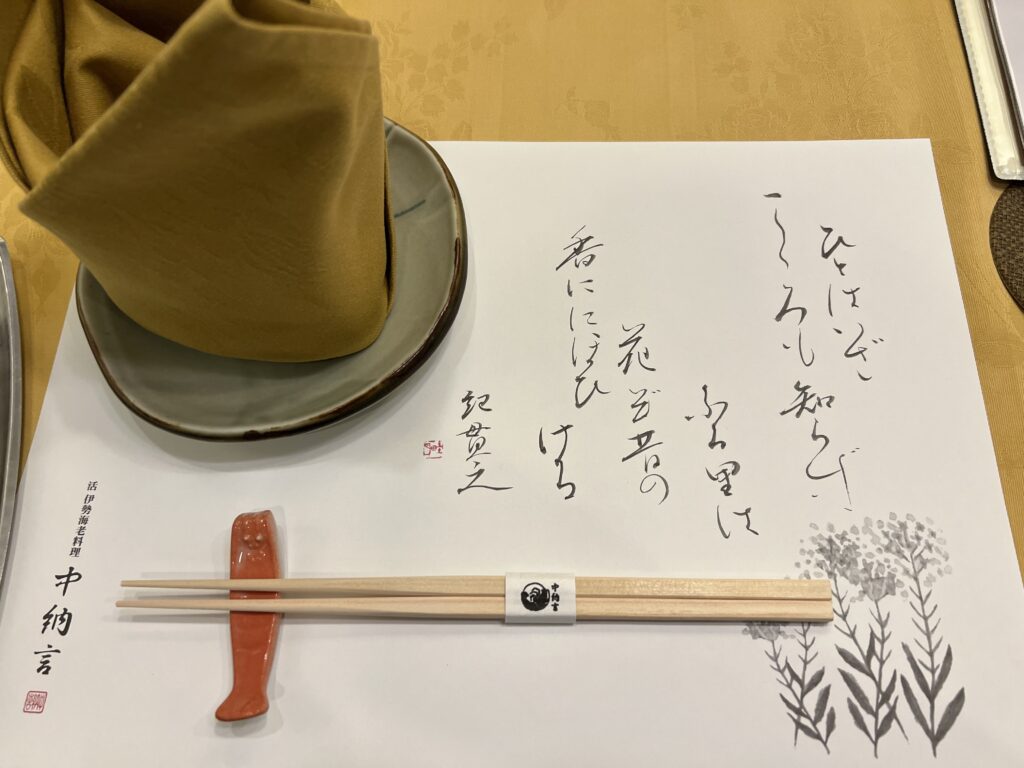 ひとはいざ
こころも知らず
ふる里は
花ぞ昔の
香ににほひ
ける
紀貫之
活 伊勢海老料理
中納言
中納言